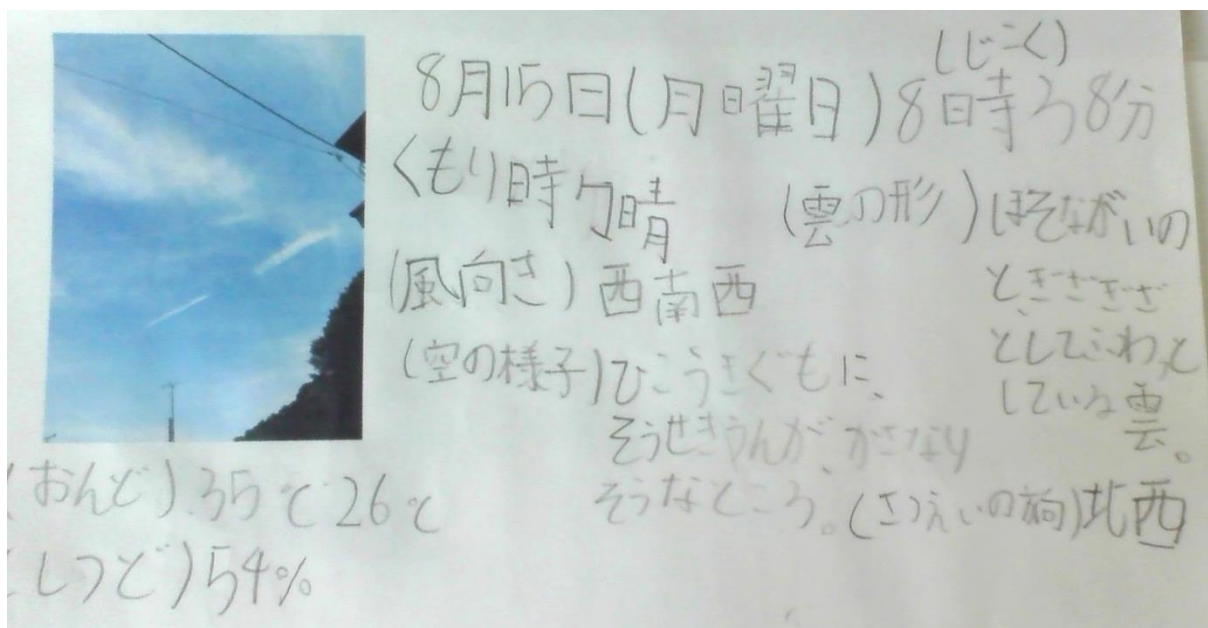 (じこく)
8月15日(月曜日)8時38分
くもり時々晴
(雲の形)ほそながいの
と、ぎざぎざ
としてふわっと
している雲。
(風向き)西南西
(空の様子)ひこうきぐもに、
そうせきうんが、かさなり
そうなところ。
(さつえいの方向)北西
(おんど)35℃26℃
(しつど)54%